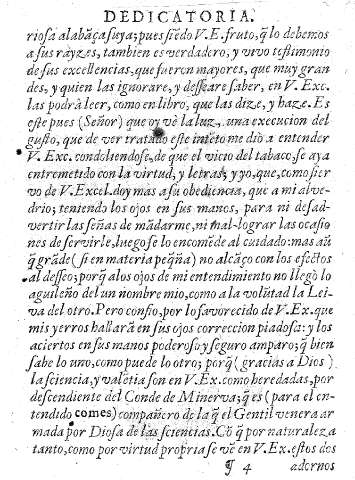 DEDICATORIA.
riosa alabãça suya; pues siẽdo V. E. fruto, q̃ lo debemos
a sus rayzes, tambien es verdadero, y vivo testimonio
de sus excellencias, que fueron mayores, que muy gran
des, y quien las ignorare, y desseare saber, en V. Exc.
las podrà leer, como en libro, que las dize, y haze. Es
este pues (Señor) que oy vè la luz, una execucion del
gusto, que de ver tratado este intẽto me diò a entender
V. Exc. condoliendose, de que el vicio del tabaco, se aya
entremetido con la virtud, y letras, y yo, que, como sier
vo de V. Excel. doy mas a su obediencia, que a mi alve-
drio; teniendo los ojos en sus manos, para ni desad-
vertir las señas de mãdarme, ni mal-lograr las ocasio
nes de servirle, luego se lo encomẽde al cuidado: mas aũ
q̃ grãde (si en materia peq̃ña) no alcãço con los efectos
al desseo; porq̃ a los ojos de mi entendimiento no llegò lo
aguileño del un nombre mio, como a la volũtad la Lei-
va del otro. Pero confio, por lo favorecido de V. Ex. que
mis yerros hallarã en sus ojos correccion piadosa: y los
aciertos en sus manos poderoso, y seguro amparo; q̃ bien
sabe lo uno, como puede lo otro; porq̃ (gracias a Dios)
la sciencia, y valẽtia son en V. Ex. como heredadas, por
descendiente del Conde de Minerva; q̃ es (para el en-
tendido comes) compañero de la q̃ el Gentil venera ar
mada por Diosa de las sciencias. Cõ q̃ por naturalez a
tanto, como por virtud propria se vẽ en V. Ex. estos dos
¶ 4 adornos